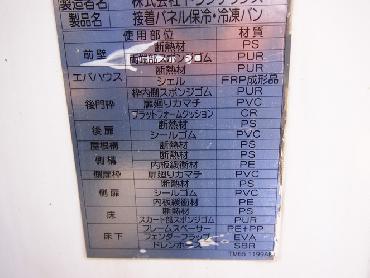 製造者名 株式会社トランテックス
製品名 接着パネル保冷・冷凍バン
使用部位 材質
前壁 断熱材 PS
スポンジゴム PUR
エバハウス 断熱材 PUR
シェル FRP成形品
後門枠 枠内側スポンジゴム PUR
扉廻りカマチ PVC
プラットフォームクッション CR
後扉 断熱材 PS
シールゴム PVC
屋根構 断熱材 PS
側構 断熱材 PS
内板緩衝材 PE
側扉枠 扉廻りカマチ PVC
側扉 断熱材 PS
シールゴム PVC
内板緩衝材 PE
床 断熱材 PS
スカート部スポンジゴム PUR
床下 フレームスペーサー PE+PP
フェンダーフラップ EVA
ドレンホース SBR